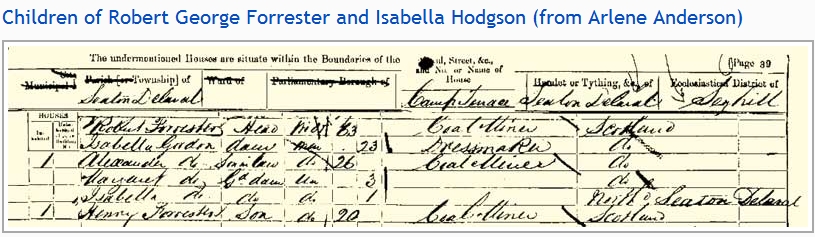 Children of Robert George Forrester and Isabella Hodgson (from Arlene Anderson)
The undermentioned Houses are situate within the Boundaries of the Page 39
Parish [or Township] of Ward of Parliamentary Borough of Street, &c., and No. or Name of House Hamlet or Tything, &c., of Ecclesiastical District of
Seaton Delaval Camp Terrace Seaton Delaval Seghill
HOUSES
Robert Forrester Head 53 Coal Miner Scotland
Isabella Gordon daur 23 Dressmaker do
1 Alexander do Son in law do 26 Coal Miner do
Margaret do Gd daur Un 3 do
Isabella do do do 1 Seaton Delaval
1 Henry Forrester Son do 20 Coal Miner Scotland